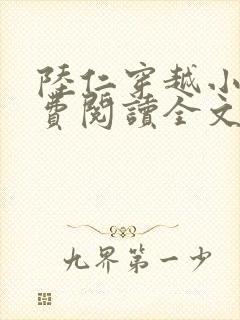 陸仁穿越小
費閱讀全文
九界第一少